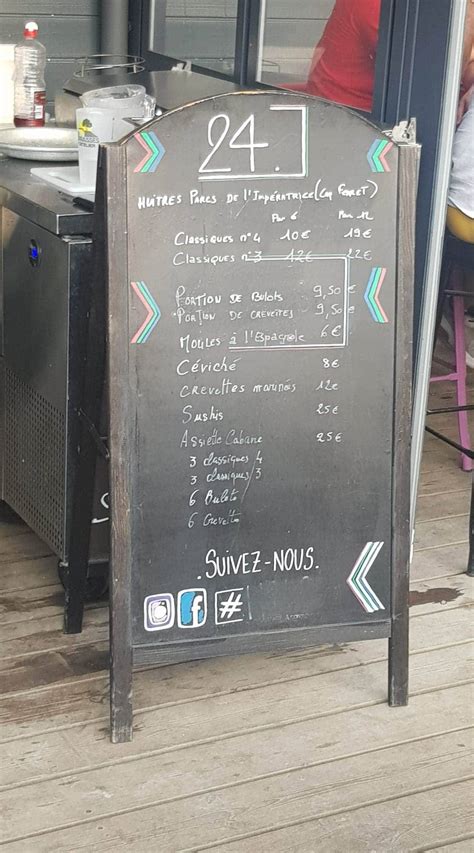 24.
HUÎTRES PARCS DE L'IMPÉRATRICE (Cap FERRET)
Par 6 Par 12
Classiques n°4 10€ 19€
Classiques n°3 12€ 22€
PORTION DE Bulots 9,50€
PORTION DE CREVETTES 9,50€
MOULES à l'Espagnole 6€
Céviché 8€
CREVETTES marinées 12€
Sushis 25€
Assiette Cabane 25€
3 classiques 4
3 classiques 3
6 Bulots
6 Crevettes
.SUIVEZ-NOUS.
f #